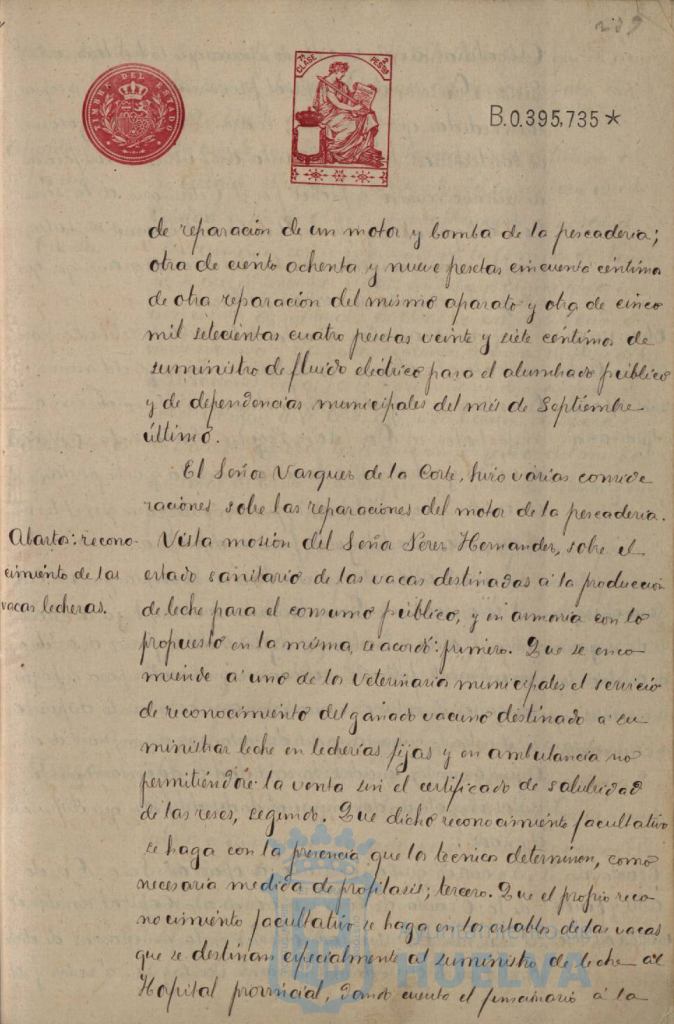 289
TIMBRE DEL ESTADO
7ª CLASE
2 PESETAS
B.0.395,735*
de reparación de un motor y bomba de la pescaderia;
otra de ciento ochenta y nueve pesetas cincuenta centimos
de otra reparación del mismo aparato y otra de cinco
mil setecientas cuatro pesetas veinte y siete céntimos de
suministro de fluido eléctrico para el alumbrado público
y de dependencias municipales del més de Septiembre
último.
El Señor Vazquez de la Corte, hizo varias conside
raciones sobre las reparaciones del motor de la pescaderia.
Abastos: recono-
cimiento de las
vacas lecheras.
Vista mosión del Señor Perez Hernandez, sobre el
estado sanitario de las vacas destinadas á la producción
de leche para el consumo público, y en armonia con lo
propuesto en la misma, se acordó: primero. Que se enco
miende á uno de los Veterinarios municipales el servicio
de reconocimiento del ganado vacuno destinado á su
ministrar leche en lecherías fijas y en ambulancia no
permitiéndose la venta sin el certificado de salubridad
de las reses, segundo. Que dicho reconocimiento facultativo
se haga con la presencia que los técnicos determinen, como
necesaria medida de profilasis; tercero. Que el propio reco
nocimiento facultativo se haga en los establos de las vacas
que se destinan especialmente al suministro de leche al
Hospital provincial, dando cuenta el funcionario á la
HUELVA